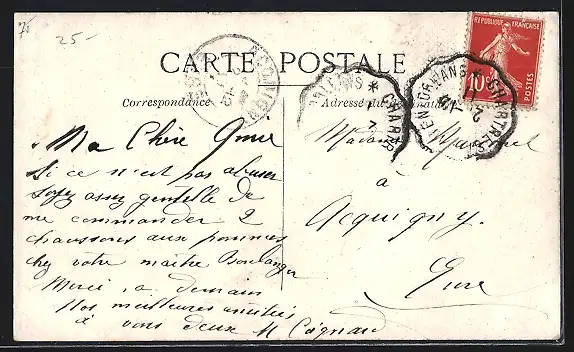 25-
CARTE POSTALE
Correspondance
Adresse du
REPUBLIQUE FRANÇAISE
10c
POSTES
CHARTRES
Ma Chère Amie
Si ce n'est pas abuser
soyez assez gentille de
me commander 2
chaussons aux pommes
chez votre maître Boulanger
Merci, à demain
Nos meilleures amitiés
à vous deux M Coignard
Madame
à
Acquigny.
Eure